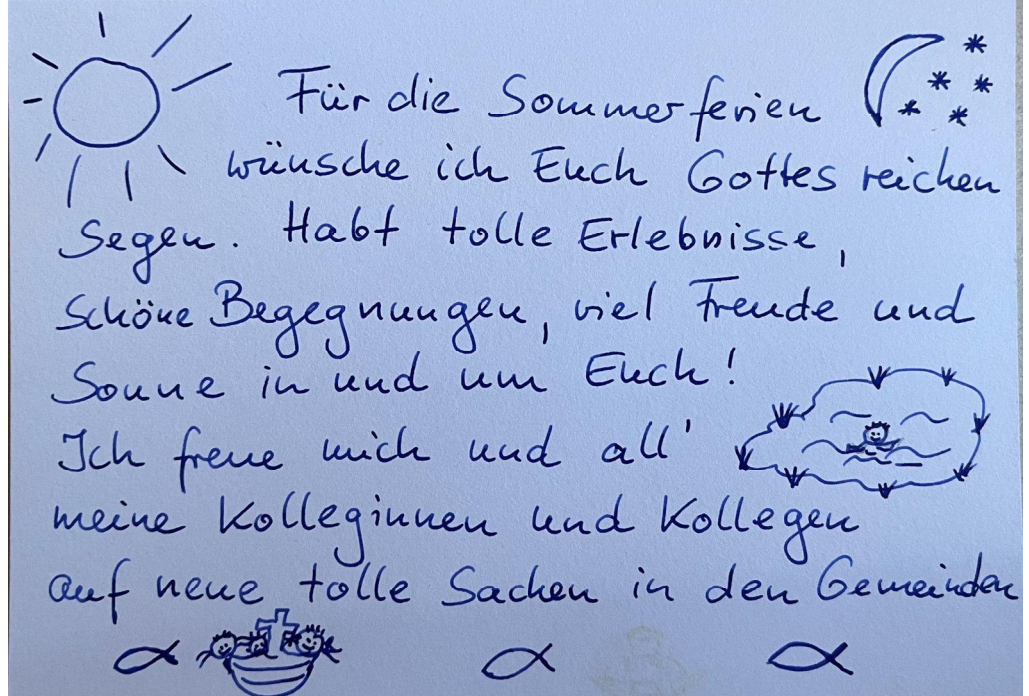 Für die Sommerferien
wünsche ich Euch Gottes reichen
Segen. Habt tolle Erlebnisse,
schöne Begegnungen, viel Freude und
Sonne in und um Euch!
Ich freue mich und all'
meine Kolleginnen und Kollegen
auf neue tolle Sachen in den Gemeinden